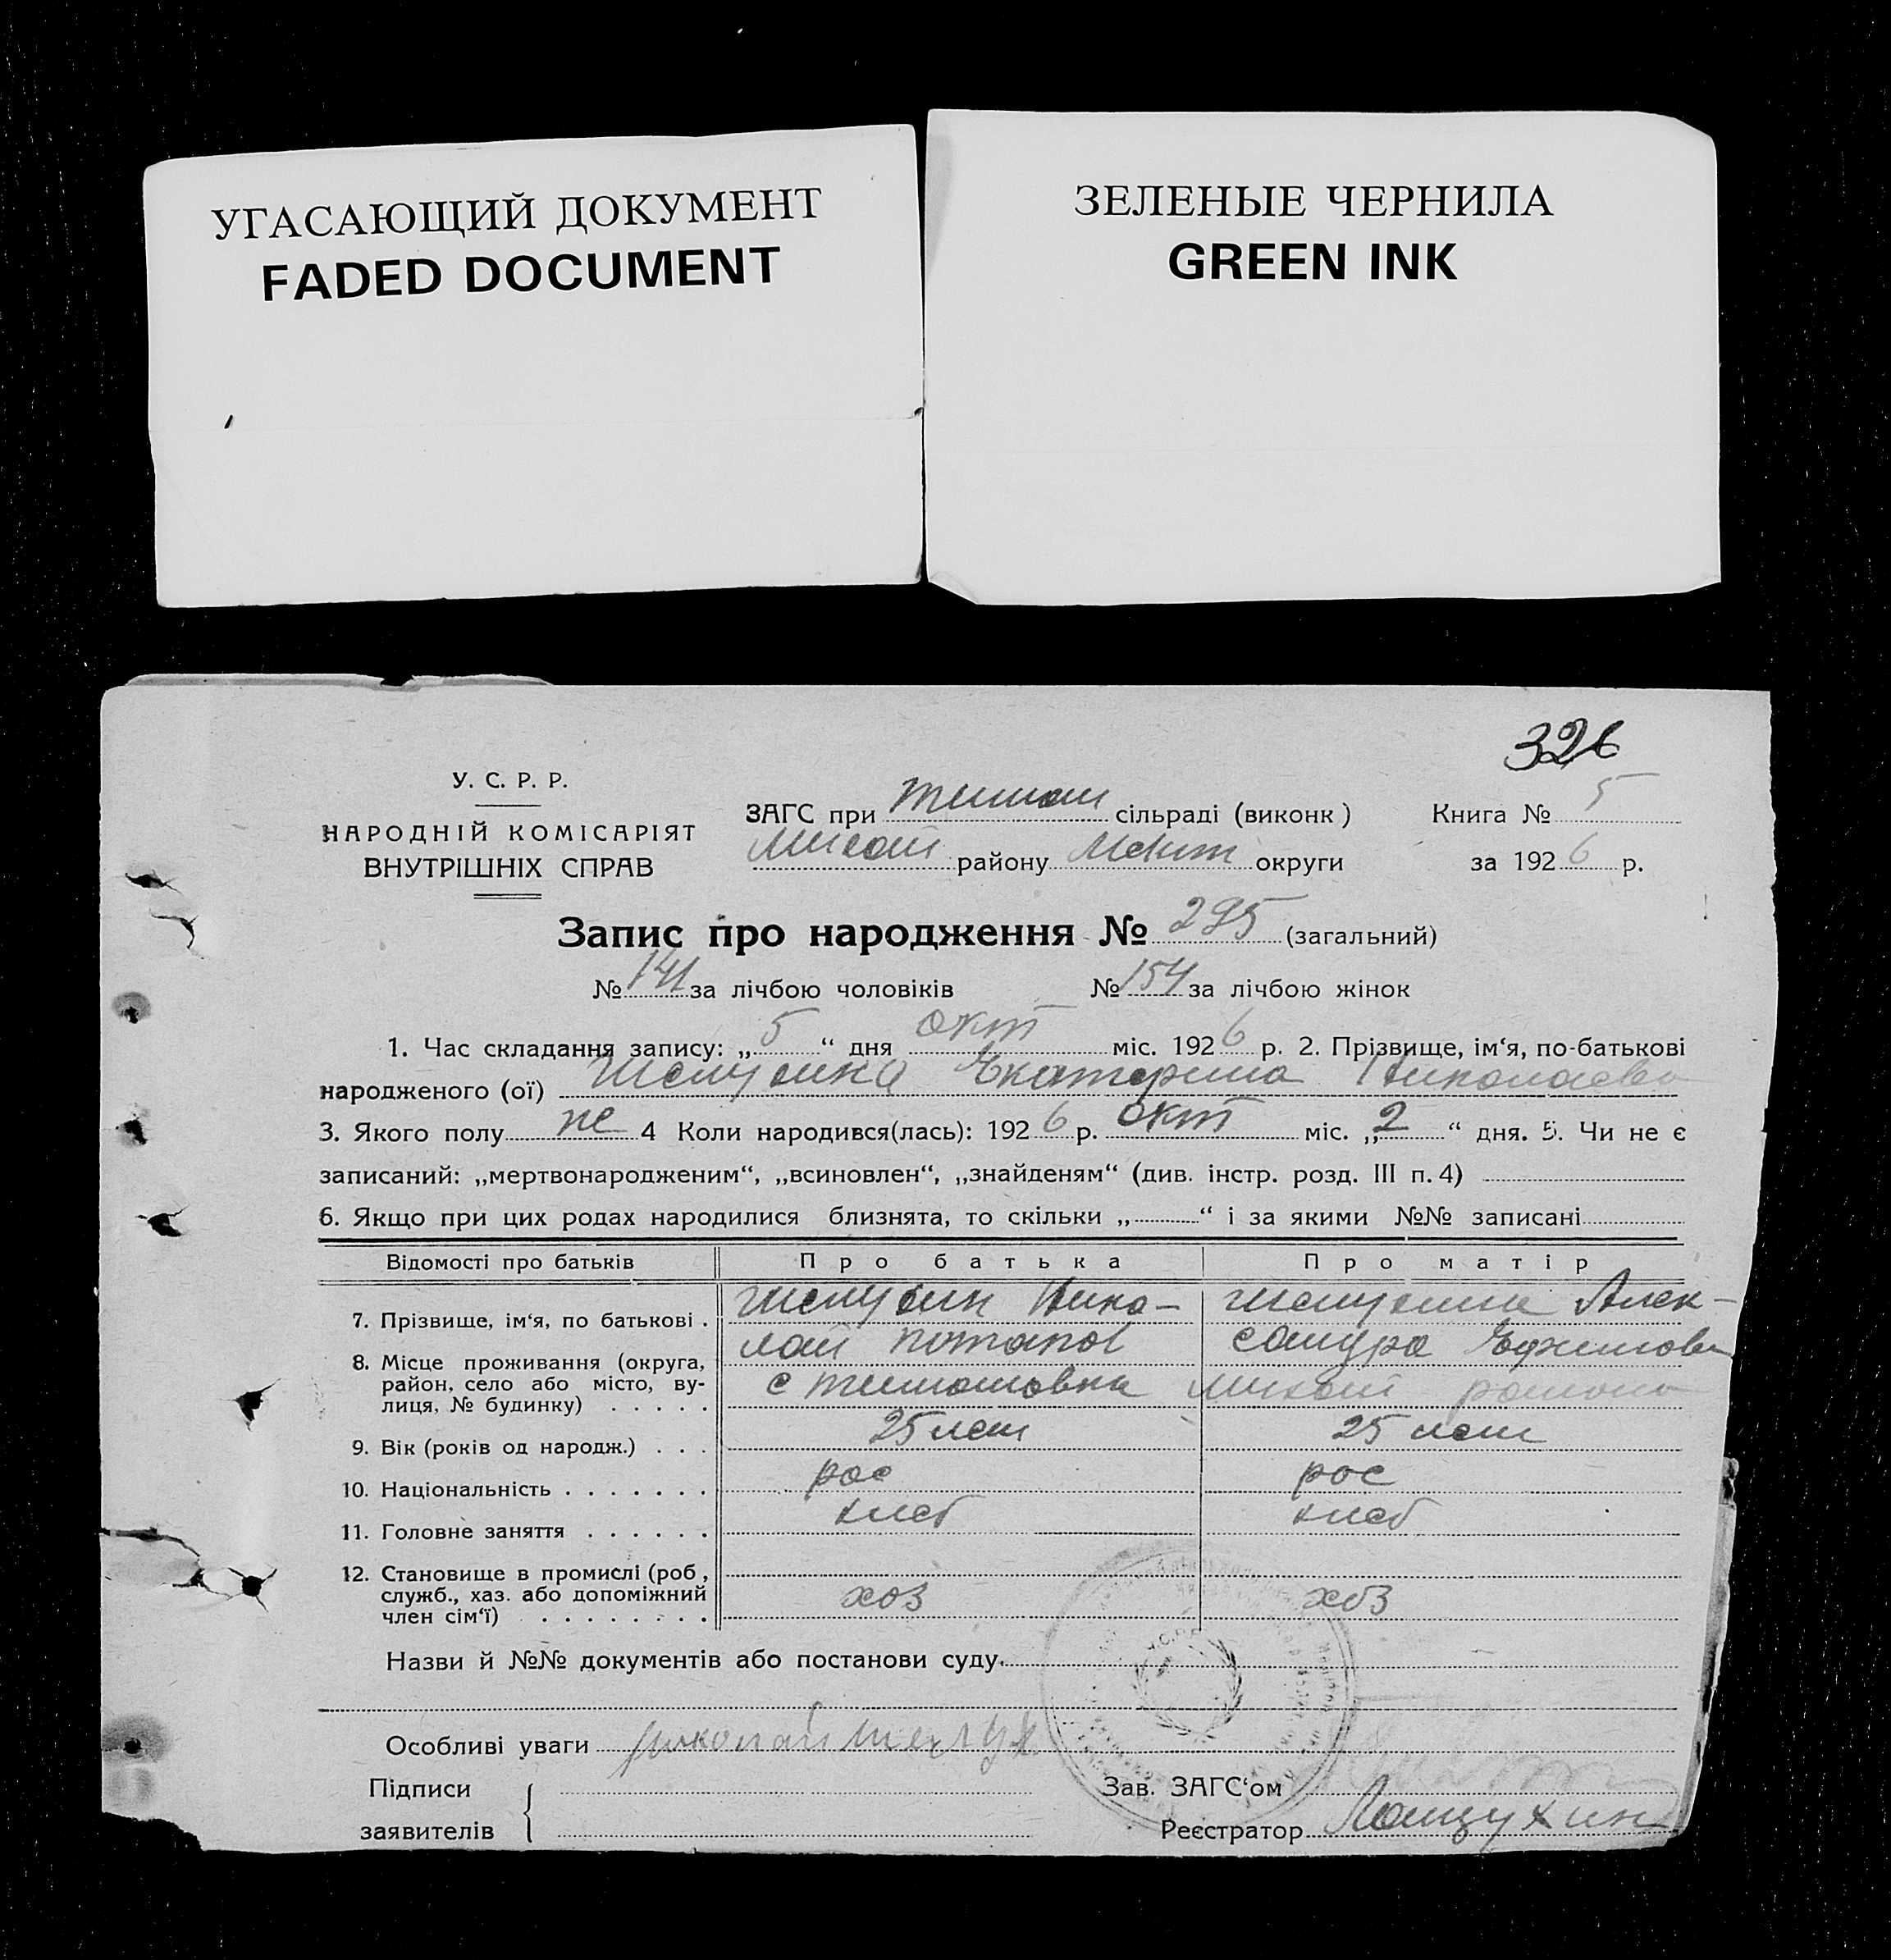 УГАСАЮЩИЙ ДОКУМЕНТ
FADED DOCUMENT
ЗЕЛЕНЫЕ ЧЕРНИЛА
GREEN INK
326
У. С. Р. Р.
НАРОДНІЙ КОМІСАРІЯТ
ВНУТРІШНІХ СПРАВ
ЗАГС при сільраді (виконк)
району округи
Книга № 5
за 1926 р.
Запис про народження № 295 (загальний)
№ 141 за лічбою чоловіків № 154 за лічбою жінок
1. Час складання запису: „5“ дня окт міс. 1926 р. 2. Прізвище, ім‘я, по-батькові
народженого (ої) Екатерина Николаевна
3. Якого полу 4 Коли народився(лась): 1926 р. окт міс. „2“ дня. 5. Чи не є
записаний: „мертвонародженим“, „всиновлен“, „знайденям“ (див. інстр. розд. III п. 4)
6. Якщо при цих родах народилися близнята, то скільки „ “ і за якими №№ записані
Відомості про батьків Про батька Про матір
7. Прізвище, ім‘я, по батькові . Нико- Алек-
лай Потапов сандра Ефимовн
8. Місце проживання (округа,
район, село або місто, ву-
лиця, № будинку) . . . . . с Тимошовка района
9. Вік (років од народж.) . . . 25 лет 25 лет
10. Національність . . . . . . . рос рос
11. Головне заняття . . . . . . хлеб хлеб
12. Становище в промислі (роб,
служб., хаз. або допоміжний
член сім‘ї) . . . . . . . . хоз хоз
Назви й №№ документів або постанови суду.
Особливі уваги николай
Підписи
заявителів
Зав. ЗАГС‘ом
Реєстратор